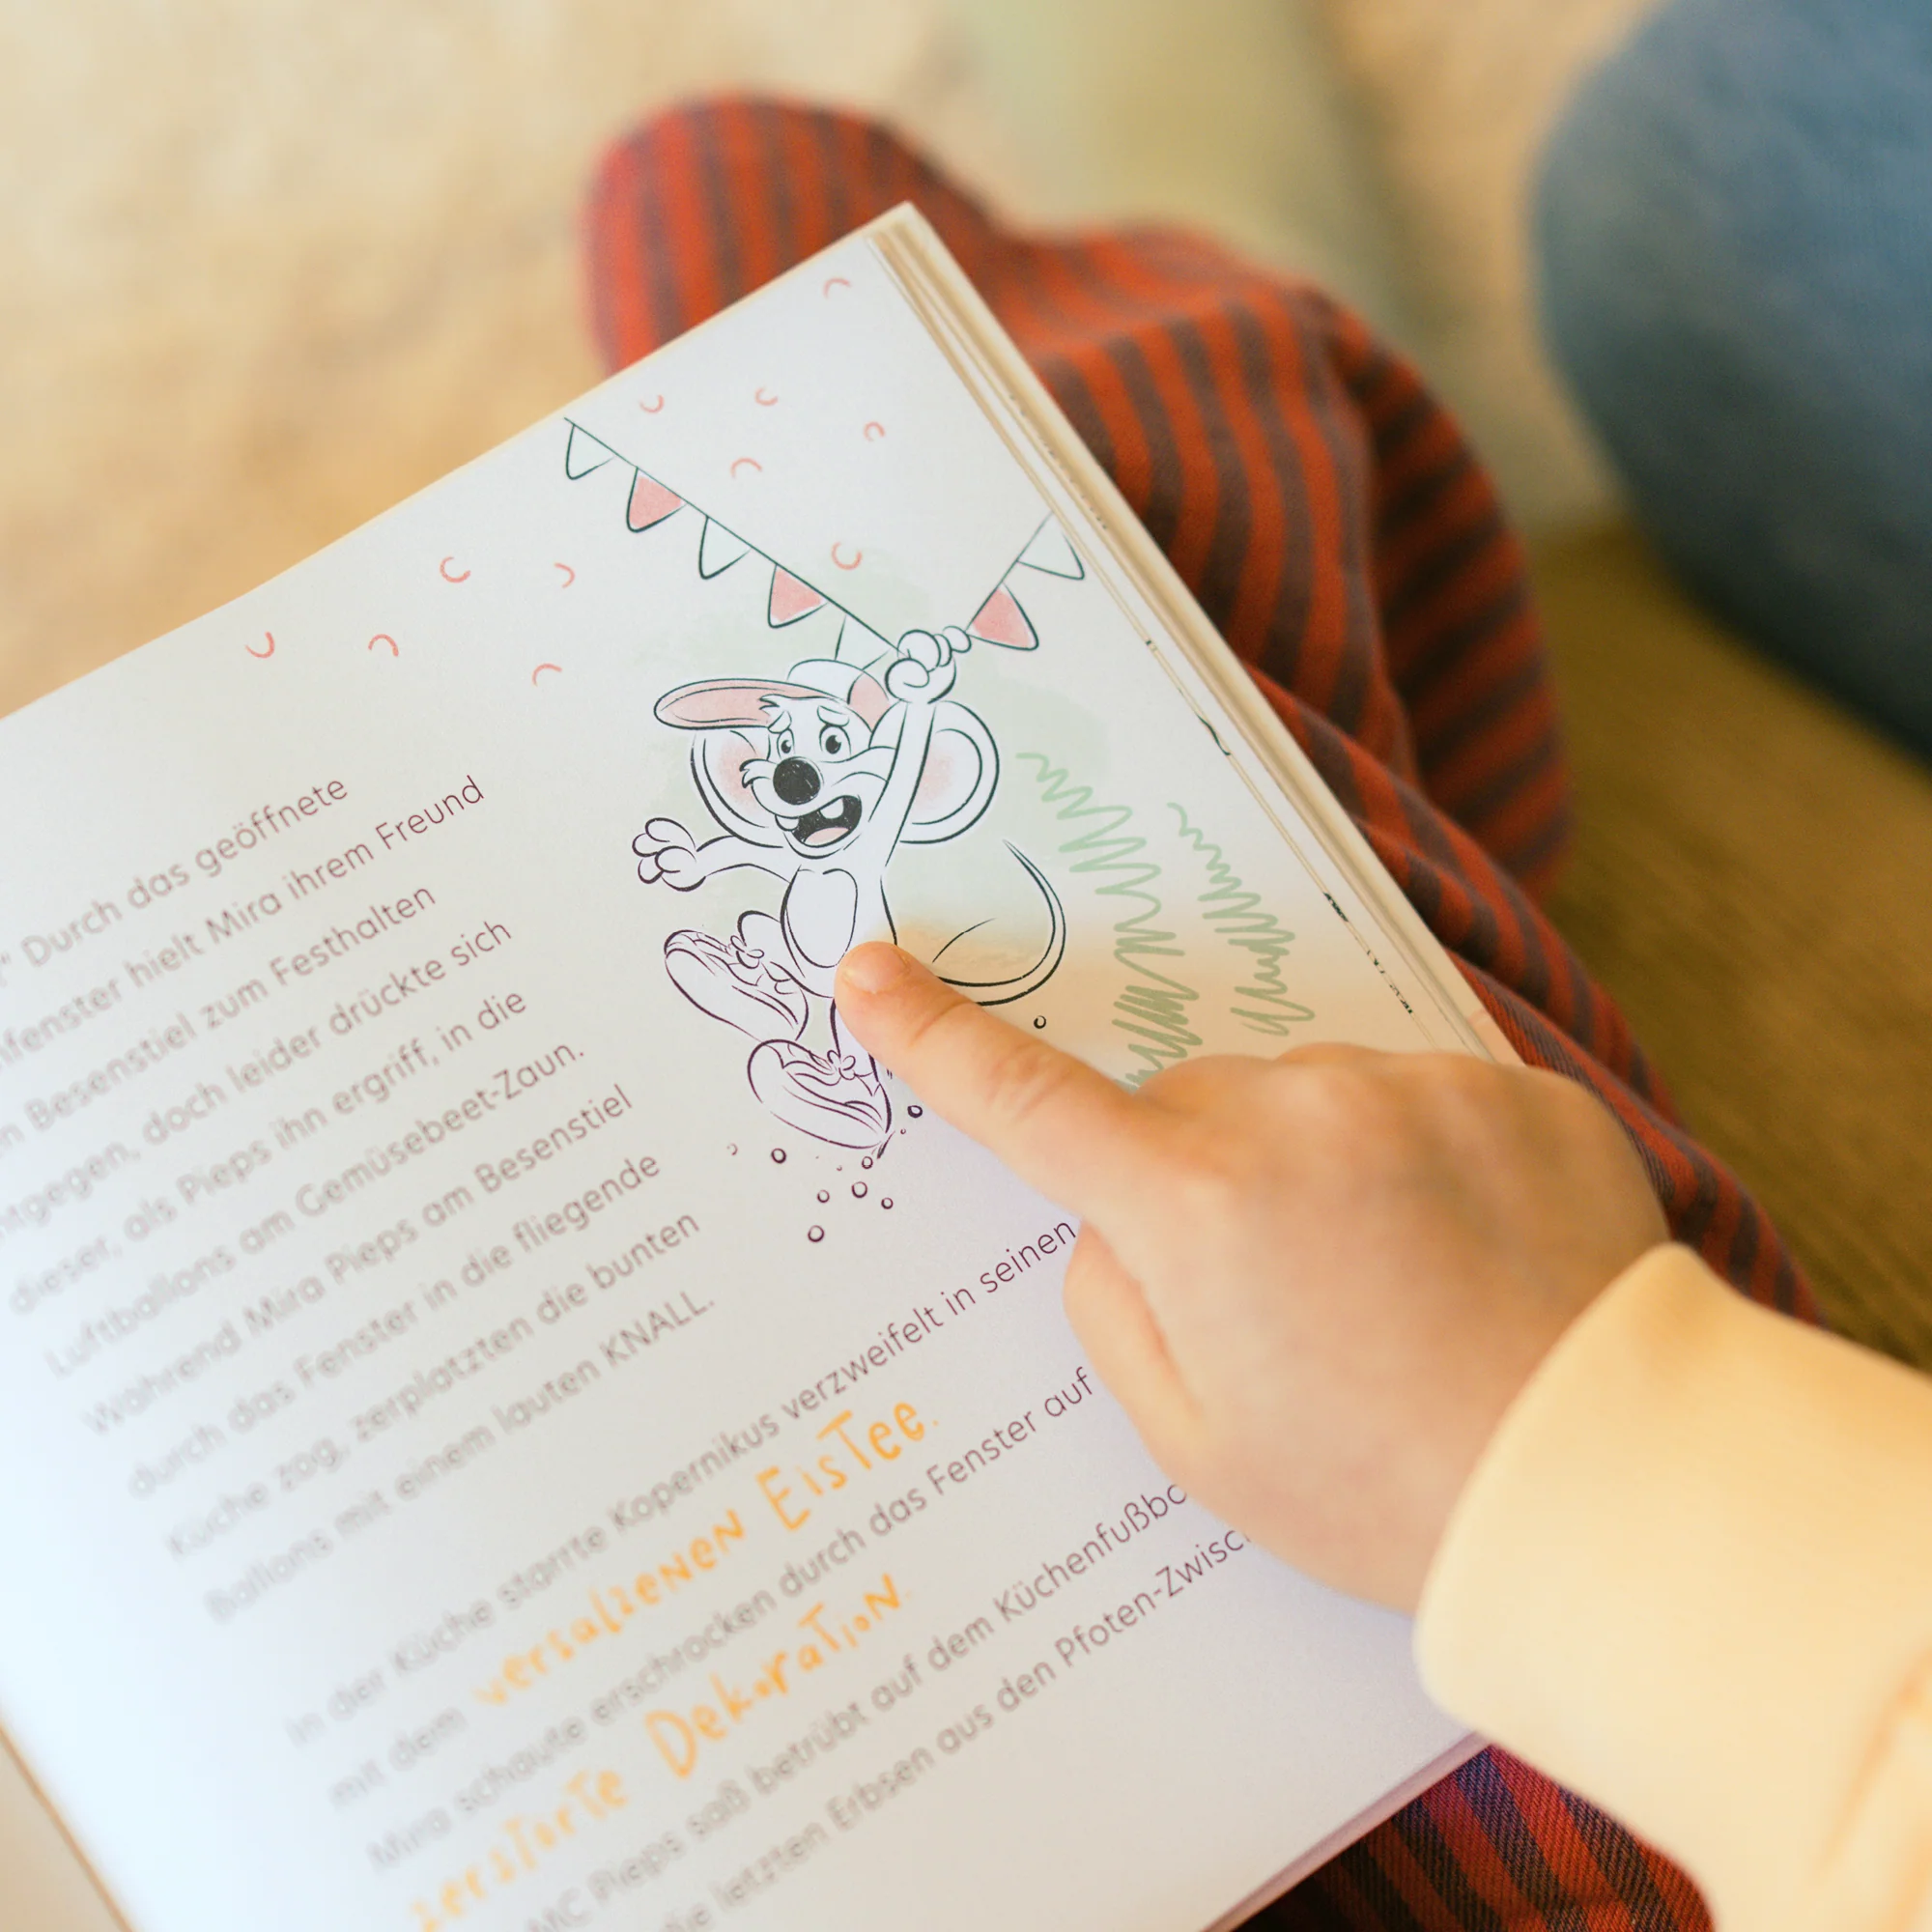 Durch das geöffnete
hielt Mira ihrem Freund
Besenstiel zum Festhalten
doch leider drückte sich
dieser, als Pieps ihn ergriff, in die
Luftballons am Gemüsebeet-Zaun.
Während Mira Pieps am Besenstiel
durch das Fenster in die fliegende
Küche zog, zerplatzten die bunten
Ballons mit einem lauten KNALL.
In der Küche starrte Kopernikus verzweifelt in seinen
mit dem versalzenen EisTee.
Mira schaute erschrocken durch das Fenster auf
zerstörte Dekoration.
MC Pieps saß betrübt auf dem
die letzten Erbsen aus den